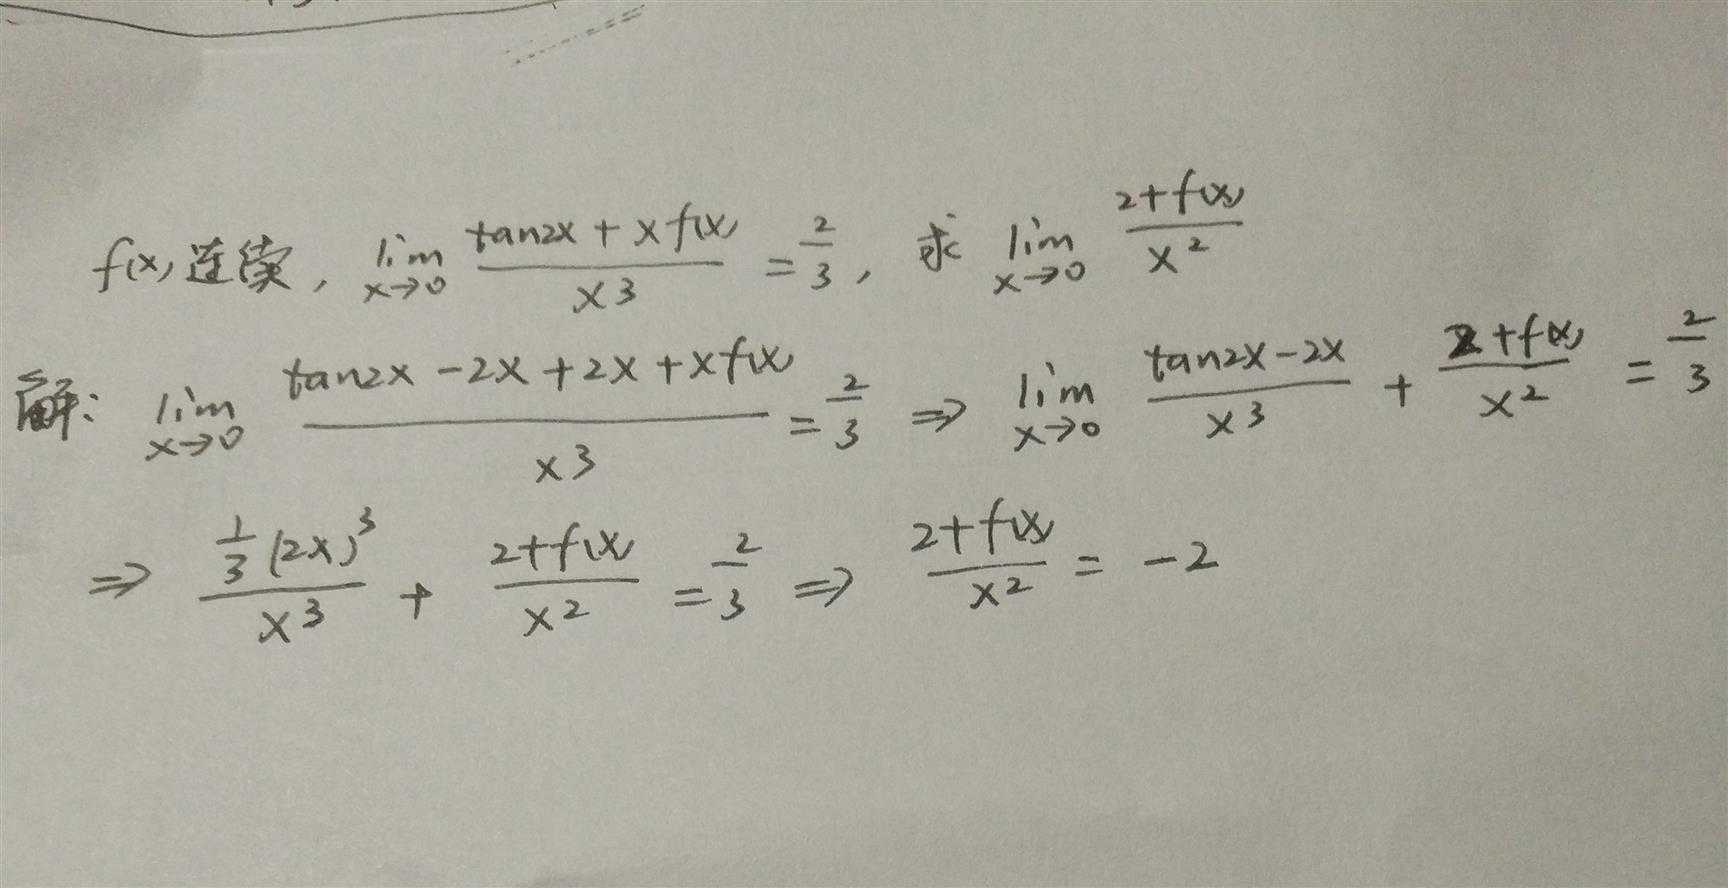 f(x)连续, lim x→0 (tan2x + xf(x))/x³ = 2/3, 求 lim x→0 (2+f(x))/x²
解: lim x→0 (tan2x - 2x + 2x + xf(x))/x³ = 2/3 ⇒ lim x→0 (tan2x - 2x)/x³ + (2+f(x))/x² = 2/3
⇒ (1/3 (2x)³)/x³ + (2+f(x))/x² = 2/3 ⇒ (2+f(x))/x² = -2